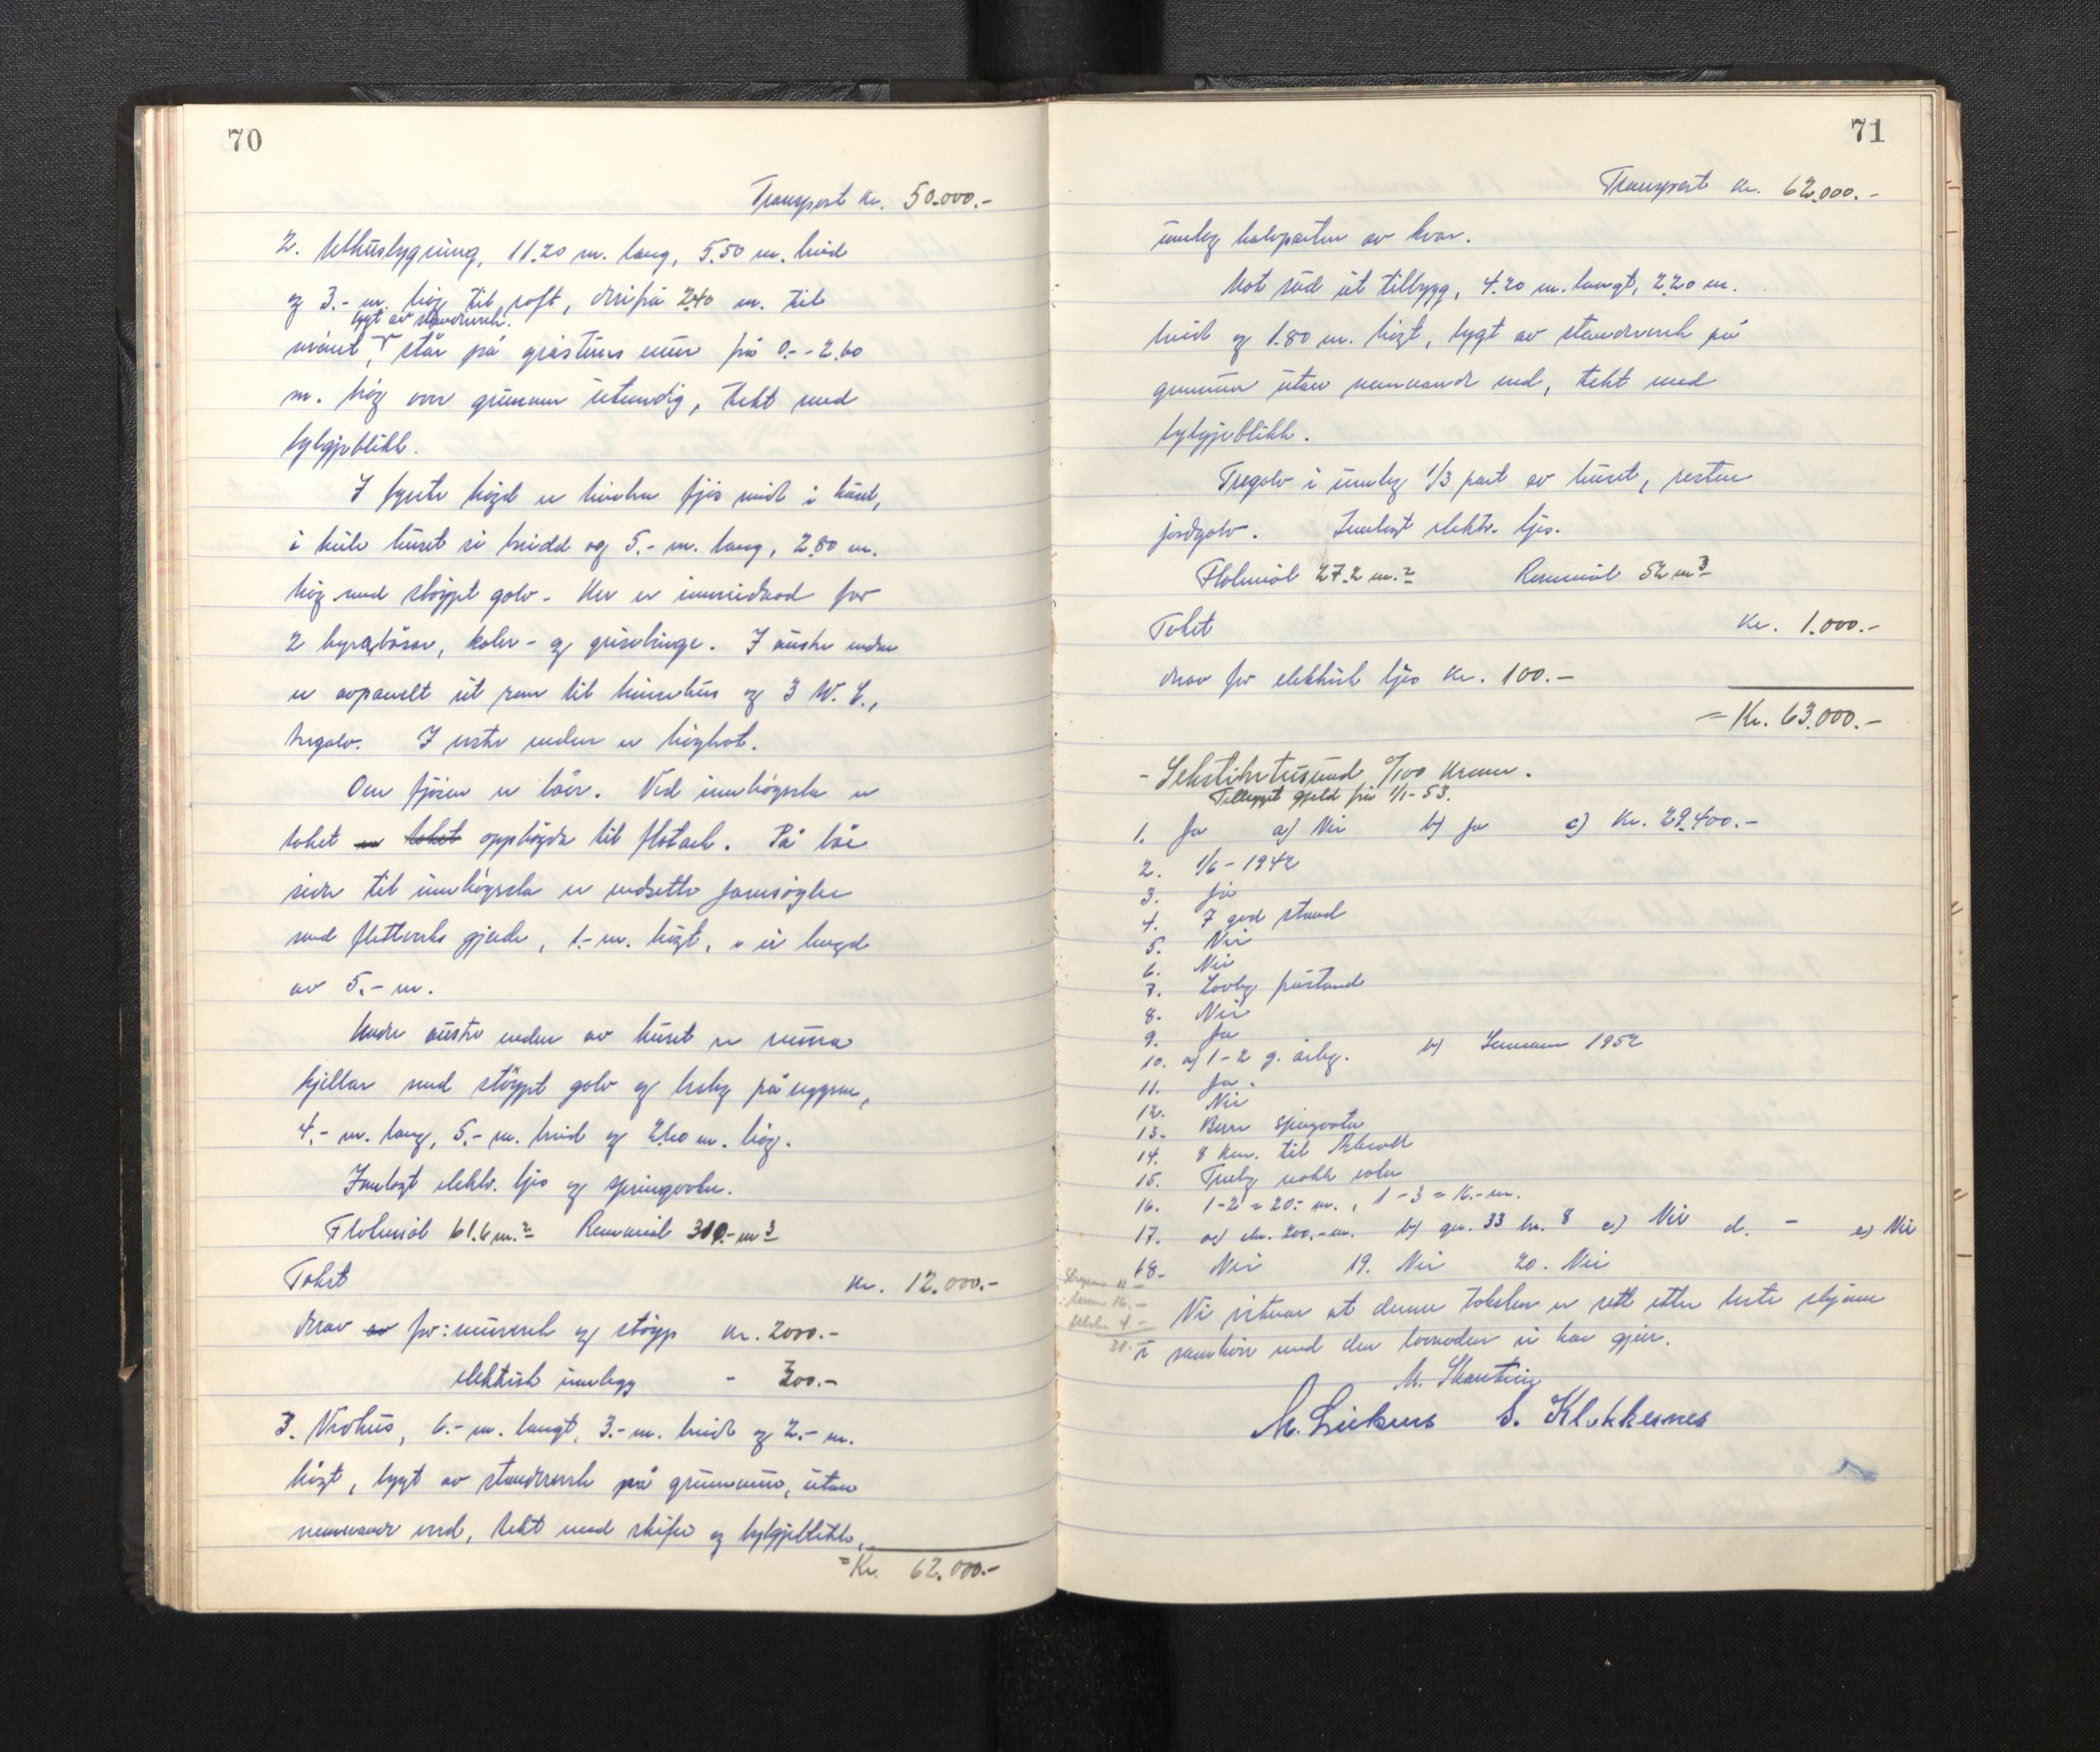 70
Transport kr. 50.000.-
2. Uthusbygning, 11.20 m. lang, 5.50 m. breid
og 3.- m. høg til roft, derifrå 2.40 m. til
bygt av standverk.
mønet, står på gråsteins mur frå 0.- - 2.60
m. høg over grunnen utvendig, tekt med
bylgjeblikk.
I fyrste høgd er hovden fjøs midt i huset,
i heile huset si breidd og 5.- m. lang, 2.80 m.
høg med støypt golv. Her er innreidnad for
2 kyrabåsar, kalve- og grisebinge. I austre enden
er avpanelt eit rom til hønsehus og 3 W. C.,
tregolv. I vestre enden er høyhot.
Om fjøsen er låve. Ved innkøgsla er
taket oppbøgde til flatark. På båe
sider til innkøgsla er nedsette jarnsøyler
med flettverks gjerde, 1.- m. høgt, i ei lengd
av 5.- m.
Under austre enden av huset er mura
kjellar med støypt golv og truleg på veggene,
4.- m. lang, 5.- m. breid og 2.60 m. høg.
Innlagt elektr. ljos og springvatn.
Flatemål 61.6 m.² Rommål 310.- m³
Takst kr. 12.000.-
Derav for: murverk og støyp kr. 2000.-
elektrisk innlegg - 300.-
3. Vedhus, 6.- m. langt, 3.- m. breidt og 2.- m.
høgt, bygt av standverk på grunnmur, utan
nemnande verd, tekt med skifer og bylgjeblikk,
= Kr. 62.000.-
71
Transport kr. 62.000.-
umleg halvparten av kvar.
Mot sud eit tilbygg, 4.20 m. langt, 2.20 m.
breidt og 1.80 m. høgt, bygt av standverk på
grunnmur utan nemnande verd, tekt med
bylgjeblikk.
Tregolv i umleg 1/3 part av huset, resten
jordgolv. Innlagt elektr. ljos.
Flatemål 27.2 m.² Rommål 52 m³
Takst kr. 1.000.-
derav for elektrisk ljos kr. 100.-
= Kr. 63.000.-
- Sekstitretusund 0/100 kroner.
Tillegget gjeld frå 1/1-53.
1. Ja a) Nei b) Ja c) Kr. 29.400.-
2. 1/6 - 1942
3. Ja
4. I god stand
5. Nei
6. Nei
7. Lovleg påstand
8. Nei
9. Ja
10. a) 1-2 g. årleg. b) Sommaren 1952
11. Ja.
12. Nei
13. Berre springvatn
14. 8 km. til
15. Truleg nokk vatn
16. 1-2 = 20.- m., 1-3 = 16.- m.
17. a) ca. 200.- m. b) gnr. 33 br. 8 c) Nei d. - e) Nei
18. Nei 19. Nei 20. Nei
Vi vitnar at denne taksten er sett etter beste skjønn
i samhøve med den lovnaden vi har gjeve.
M. Skanting
S. Klokkernes